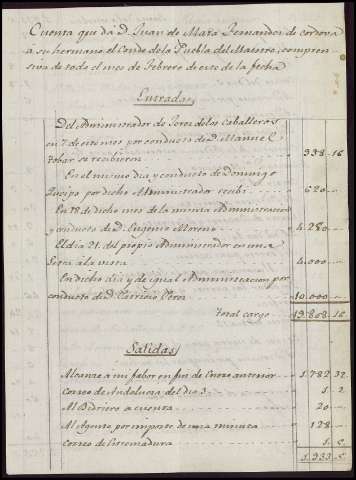 Cuenta que dá D. Juan de Mata Fernandez de cordova
a su hermano el Conde de la Puebla del Maestre, compren-
siva de todo el mes de Febrero de este de la fecha
Entradas
Del Administrador de Jerez de los Caballeros
en 7 de este mes por conducto de D. Manuel
Tobar se recibieron 338..16
En el mismo dia y conducto de Domingo
por dicho Administrador recibi 620
En 18 de dicho mes de la misma Administracion
y conducto de D. Eugenio Moreno 4.280
El dia 21. del propio Administrador en una
Letra á la vista 4.000
En dicho dia y de igual Administracion por
conducto de D. Patricio Perez 10.000
Total cargo 19.808..16
Salidas
Alcance a mi fabor en fin de Enero anterior 1.782..32
Correo de Andalucia del dia 3 1..2
Al Bidriero a cuenta 20
Al Agente por importe de una minuta 128
Correo de Estremadura 1..5
1.933..5